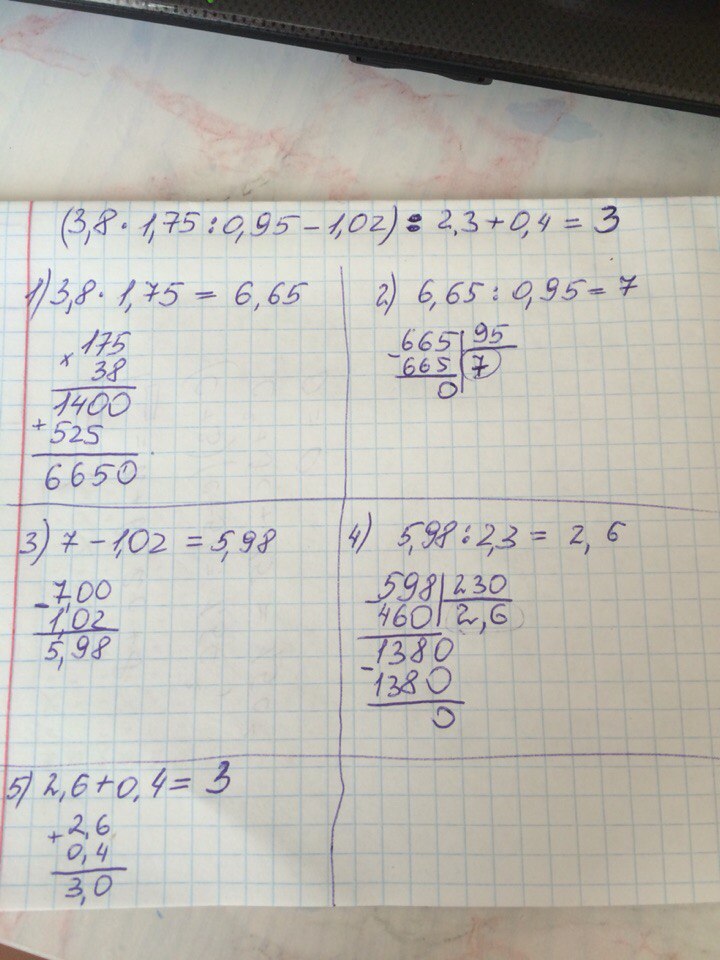 (3,8 · 1,75 : 0,95 – 1,02) : 2,3 + 0,4 = 3
1) 3,8 · 1,75 = 6,65
× 175
38
1400
+ 525
6650
2) 6,65 : 0,95 = 7
– 665 | 95
665 | 7
0
3) 7 – 1,02 = 5,98
– 7,00
1,02
5,98
4) 5,98 : 2,3 = 2,6
– 598 | 230
460 | 2,6
– 1380
1380
0
5) 2,6 + 0,4 = 3
+ 2,6
0,4
3,0